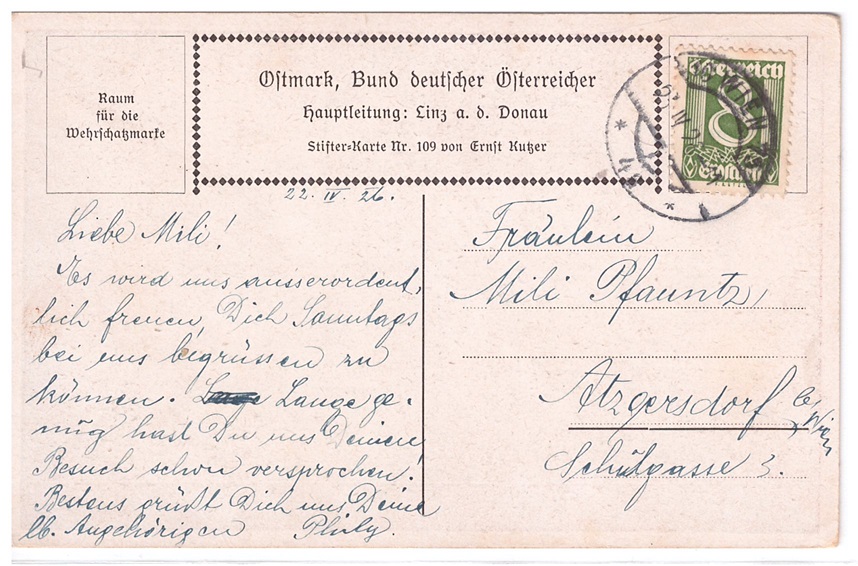 Raum
für die
Wehrschatzmarke
Ostmark, Bund deutscher Österreicher
Hauptleitung: Linz a. d. Donau
Stifter-Karte Nr. 109 von Ernst Kutzer
Österreich
8
Groschen
WIEN
22. IV. 26.
Liebe Mili!
Es wird uns ausserordent,
lich freuen, Dich Sonntags
bei uns begrüssen zu
können. Lange ge-
nug hast Du uns Deinen
Besuch schon versprochen!
Bestens grüßt Dich uns Deine
lb. Angehörigen
Fräulein
Mili Pfauntz,
Atzgersdorf b/
Wien
Schulgasse 3.